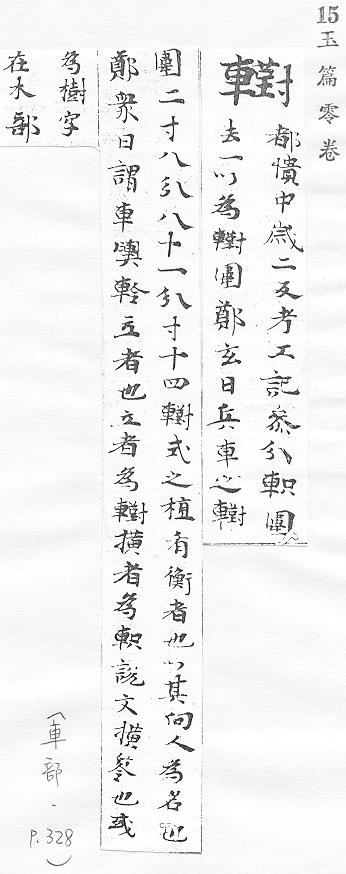 15玉篇零卷
轛 都憒中嵗二反考工記叅分軹圍
去一以為轛圍鄭玄曰兵車之轛
圍二寸八分八十一分寸十四轛式之植者衡者也以其向人為名也
鄭衆曰謂車輿軨立者也立者為轛横者為軹説文横軨也或
為樹字
在木部
(車部.
P.328)